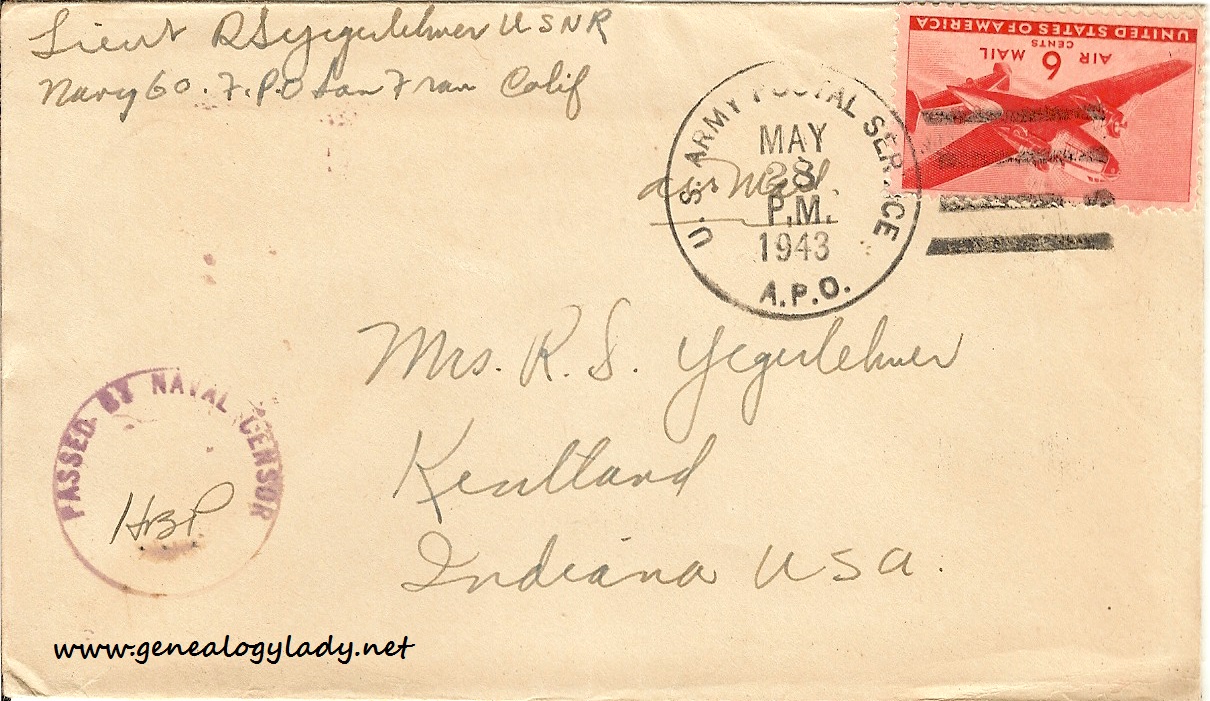 Lieut RS Yegerlehner USNR
Navy 60. F.P.O San Fran Calif
UNITED STATES OF AMERICA
AIR 6 MAIL
CENTS
U.S. ARMY POSTAL SERVICE
MAY
28
P.M.
1943
A.P.O.
air Mail.
Mrs. R. S. Yegerlehner
Kentland
Indiana USA.
PASSED BY NAVAL CENSOR
HBP
www.genealogylady.net